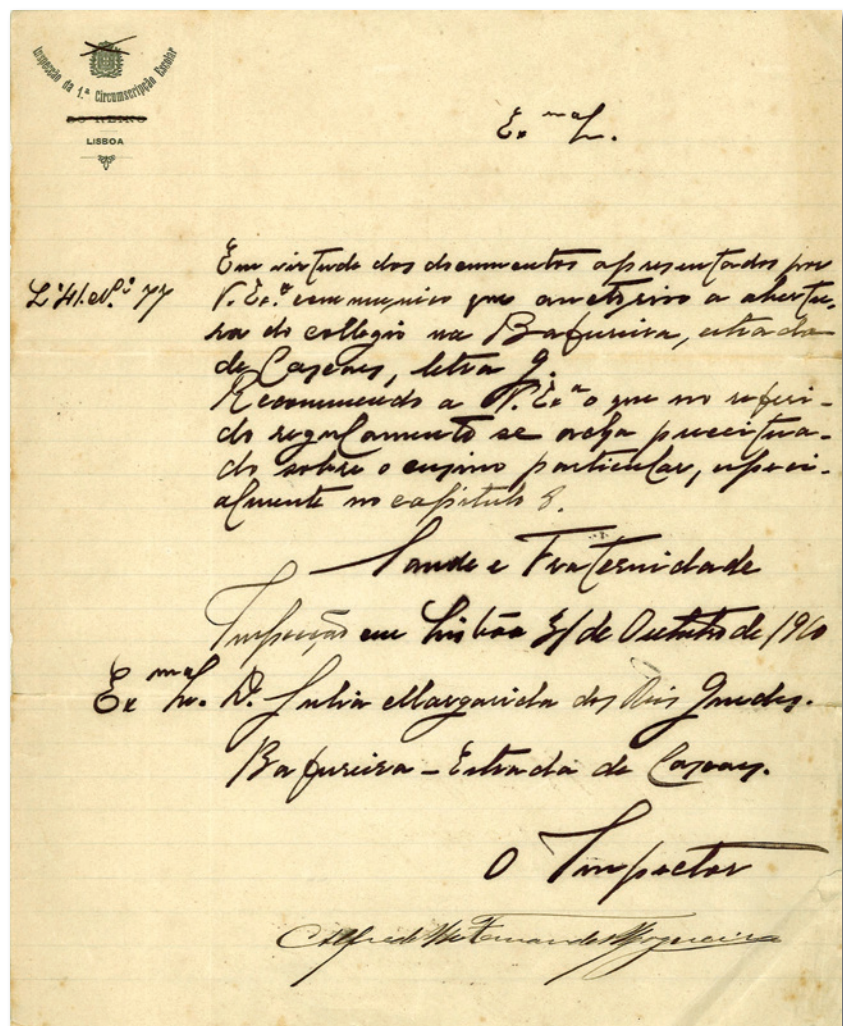 Inspecção da 1.ª Circumscripção Escolar
DO REINO
LISBOA
Ex.ma Sr.
L.º 41. N.º 77
Em virtude dos documentos apresentados por
V. Ex.ª communico que auctoriso a abertu-
ra do collegio na Bafureira, estrada
de Cascaes, letra G.
Recommendo a V. Ex.ª o que no referi-
do regulamento se acha preceitua-
do sobre o ensino particular, especi-
almente no capitulo 8.
Saude e Fraternidade
Inspecção em Lisbôa 31 de Outubro de 1910
Ex.ma Sr. D. Julia Margarida dos Reis Guedes.
Bafureira - Estrada de Cascaes.
O Inspector
Alfredo Fernandes Nogueira